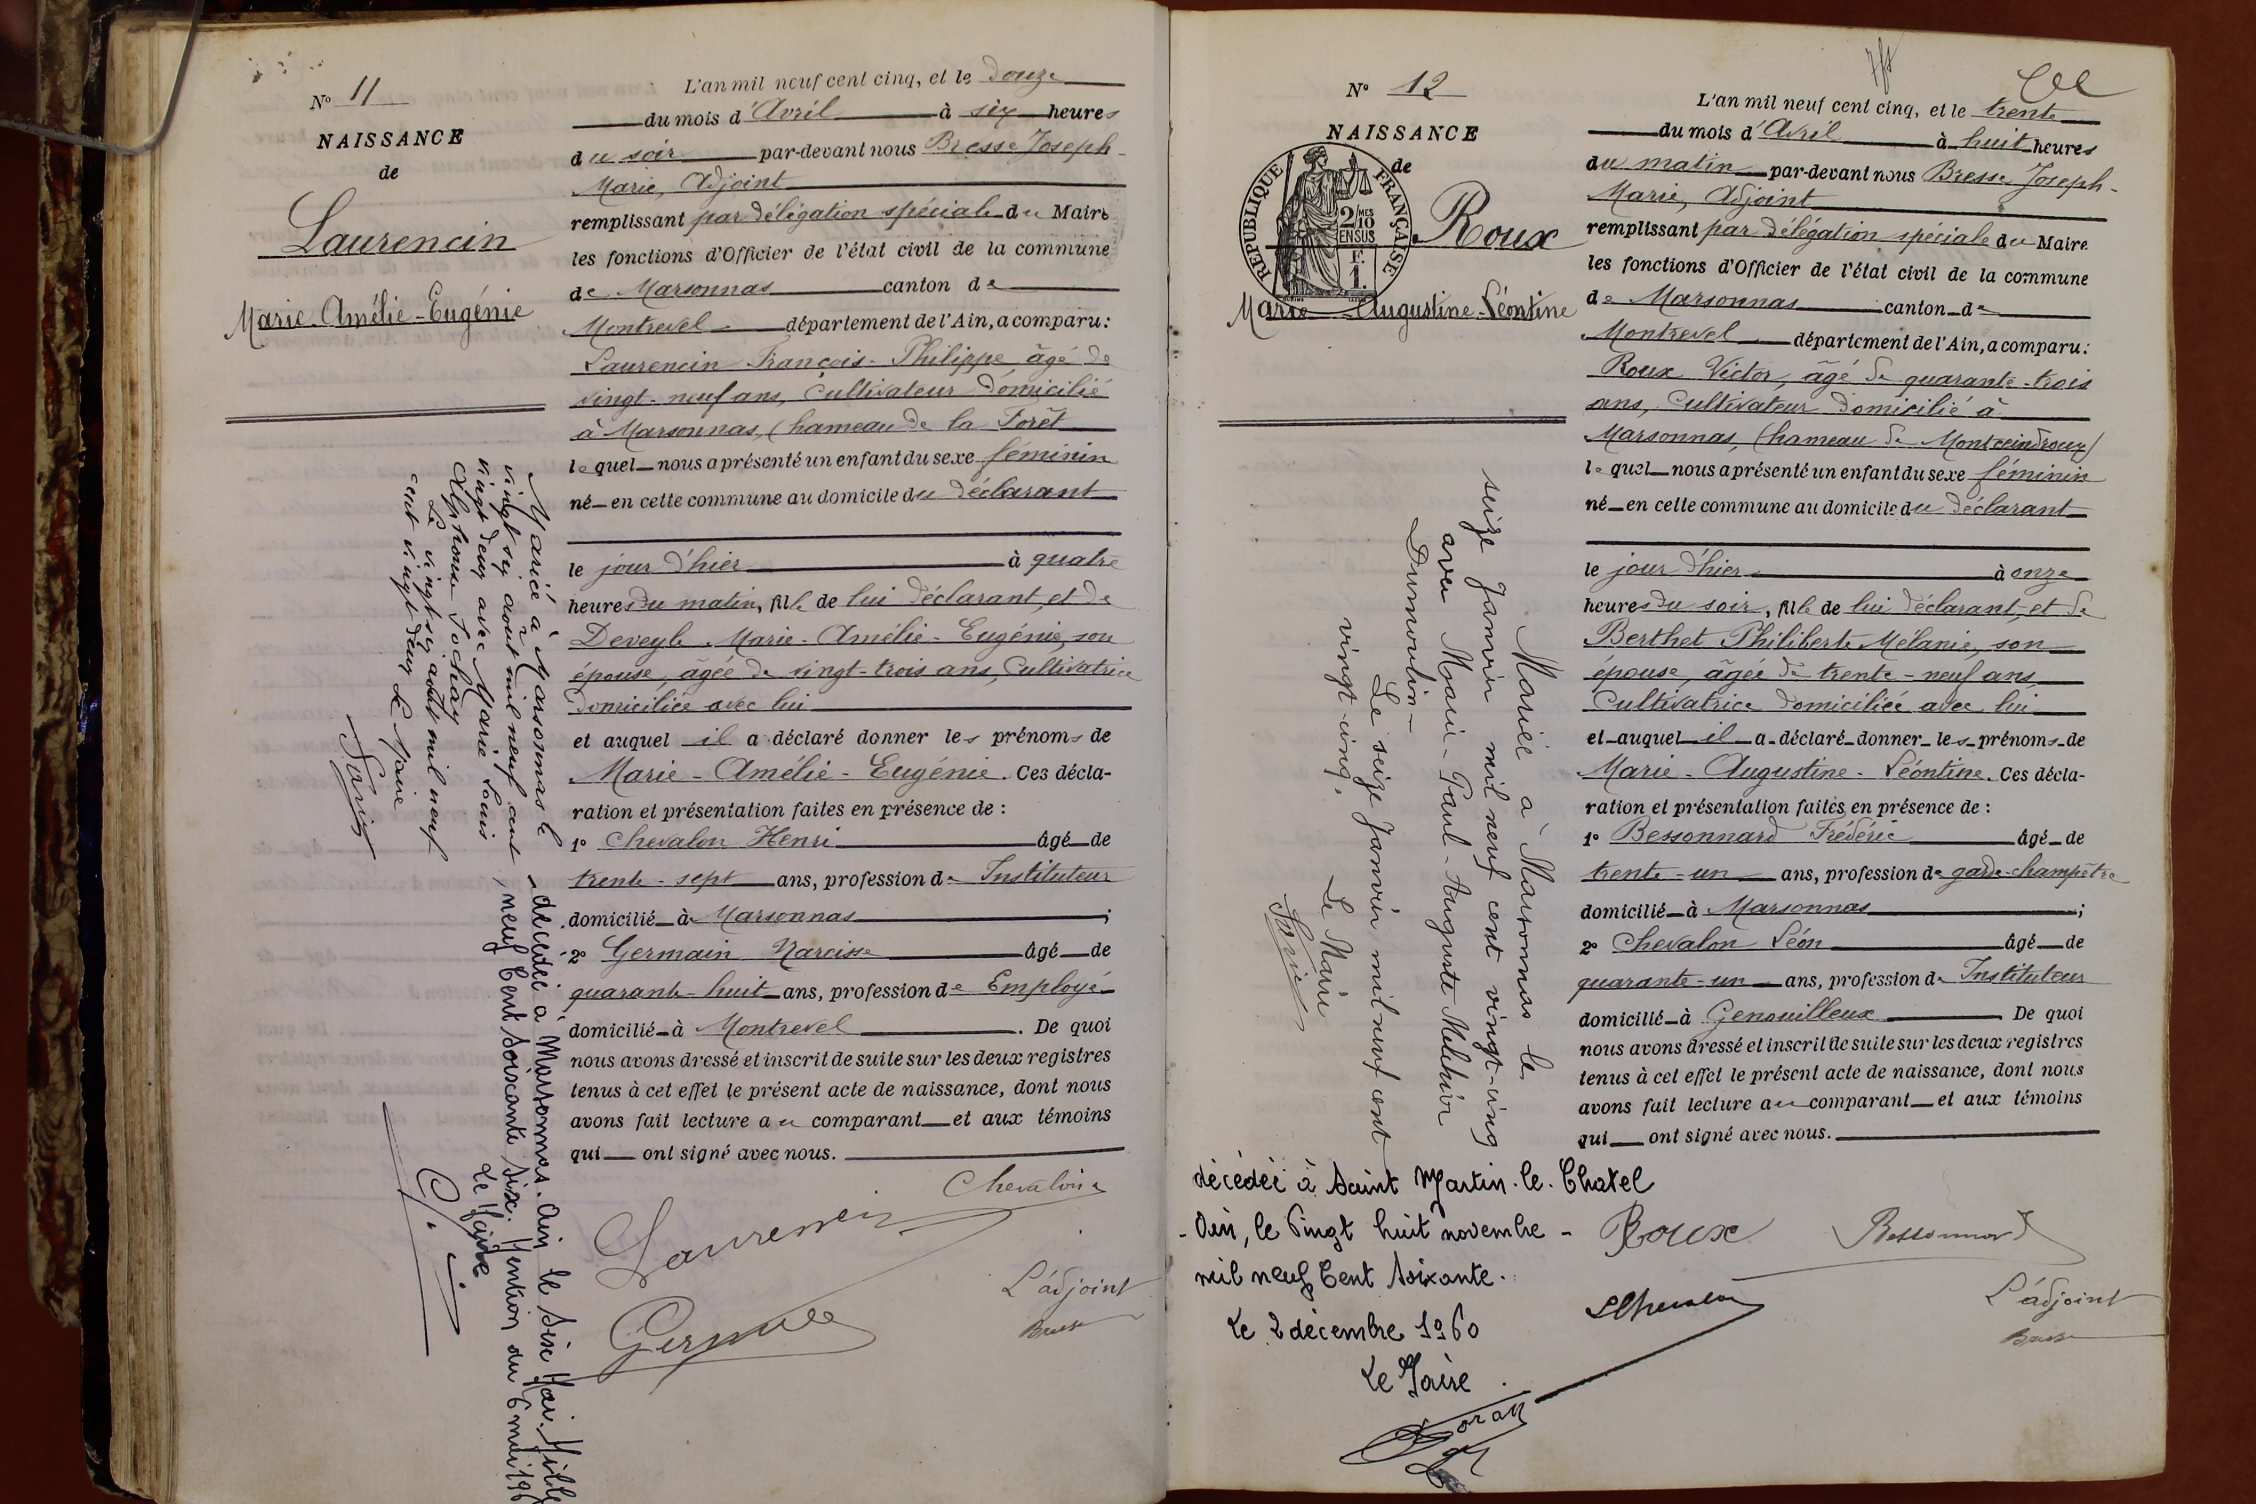 N° 11
NAISSANCE
de
Laurencin
Marie-Amélie-Eugénie
L'an mil neuf cent cinq, et le douze
du mois d'Avril à six heures
du soir par-devant nous Bresse Joseph-
Marie, Adjoint
remplissant par délégation spéciale du Maire
les fonctions d'Officier de l'état civil de la commune
de Marsonnas canton de
Montrevel département de l'Ain, a comparu:
Laurencin François-Philippe âgé de
vingt-neuf ans, Cultivateur domicilié
à Marsonnas, (hameau de la Forêt
lequel nous a présenté un enfant du sexe féminin
né en cette commune au domicile du déclarant
le jour d'hier à quatre
heures du matin, fille de lui déclarant, et de
Deveyle Marie-Amélie-Eugénie, son
épouse, âgée de vingt-trois ans, Cultivatrice
domiciliée avec lui
et auquel il a déclaré donner les prénoms de
Marie-Amélie-Eugénie. Ces décla-
ration et présentation faites en présence de :
1° Chevalon Henri âgé de
trente-sept ans, profession d'Instituteur
domicilié à Marsonnas ;
2° Germain Narcisse âgé de
quarante-huit ans, profession de Employé
domicilié à Montrevel. De quoi
nous avons dressé et inscrit de suite sur les deux registres
tenus à cet effet le présent acte de naissance, dont nous
avons fait lecture au comparant et aux témoins
qui ont signé avec nous.
Chevalon
Laurencin
L'adjoint
Germain
Bresse
Mariée à Marsonnas le
vingt six août mil neuf cent
vingt deux avec Marie Louis
Alphonse Pochay
Le vingt six août mil neuf
cent vingt deux Le Maire
décédée à Marsonnas. Ain le Six Mai. Mille
neuf Cent Soixante Six. Mention du 6 mai 196
Le Maire
N° 12
NAISSANCE
de
RÉPUBLIQUE FRANÇAISE
2/10 MES
EN SUS
F.
1.
Roux
Marie-Augustine-Léontine
L'an mil neuf cent cinq, et le trente
du mois d'Avril à huit heures
du matin par-devant nous Bresse Joseph-
Marie, Adjoint
remplissant par délégation spéciale du Maire
les fonctions d'Officier de l'état civil de la commune
de Marsonnas canton de
Montrevel département de l'Ain, a comparu:
Roux Victor, âgé de quarante-trois
ans, Cultivateur domicilié à
Marsonnas, (hameau de Montceindroux)
lequel nous a présenté un enfant du sexe féminin
né en cette commune au domicile du déclarant
le jour d'hier à onze
heures du soir, fille de lui déclarant, et de
Berthet Philiberte Mélanie, son
épouse, âgée de trente-neuf ans,
Cultivatrice domiciliée avec lui
et auquel il a déclaré donner les prénoms de
Marie-Augustine-Léontine. Ces décla-
ration et présentation faites en présence de :
1° Bessonnard Frédéric âgé de
trente-un ans, profession de garde-champêtre
domicilié à Marsonnas ;
2° Chevalon Léon âgé de
quarante-un ans, profession d'Instituteur
domicilié à Genouilleux. De quoi
nous avons dressé et inscrit de suite sur les deux registres
tenus à cet effet le présent acte de naissance, dont nous
avons fait lecture au comparant et aux témoins
qui ont signé avec nous.
Roux
Bessonnard
LChevalon
L'adjoint
Bresse
Mariée à Marsonnas le
seize Janvier mil neuf cent vingt-cinq
avec Marie-Paul-Auguste Melchior
Dumoulin-
Le seize Janvier mil neuf cent
vingt-cinq.
Le Maire
décédée à Saint Martin-le-Chatel
-Ain, le Vingt huit novembre -
mil neuf Cent Soixante.
Le 2 décembre 1960
Le Maire